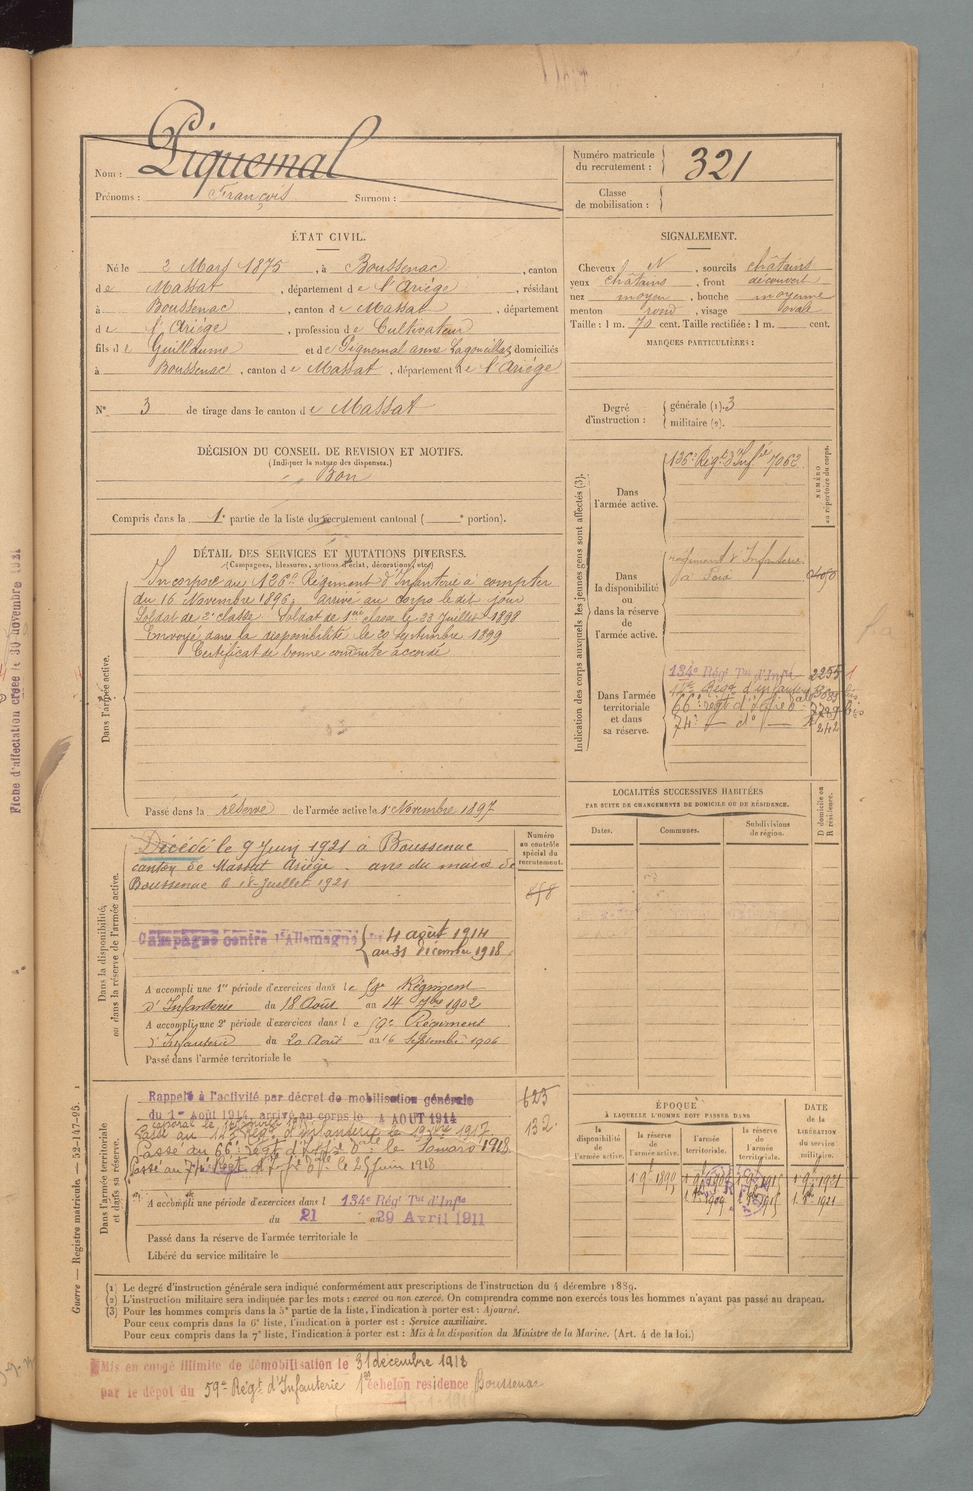 Fiche d'affectation créée le 30 novembre 1921
Nom : Piquemal
Prénoms : François Surnom :
Numéro matricule
du recrutement : 321
Classe
de mobilisation :
ÉTAT CIVIL.
Né le 2 Mars 1875, à Boussenac, canton
de Massat, département de l'Ariége, résidant
à Boussenac, canton de Massat, département
de l'Ariége, profession de Cultivateur
fils de Guillaume et de Piquemal anne domiciliés
à Boussenac, canton de Massat, département de l'Ariége
N° 3 de tirage dans le canton de Massat
SIGNALEMENT.
Cheveux N, sourcils châtains
yeux châtains, front découvert
nez moyen, bouche moyenne
menton rond, visage ovale
Taille : 1 m. 70 cent. Taille rectifiée : 1 m. cent.
MARQUES PARTICULIÈRES :
Degré
d'instruction :
générale (1). 3
militaire (2).
DÉCISION DU CONSEIL DE REVISION ET MOTIFS.
(Indiquer la nature des dispenses.)
Bon
Compris dans la 1e partie de la liste du recrutement cantonal ( e portion).
DÉTAIL DES SERVICES ET MUTATIONS DIVERSES.
(Campagnes, blessures, actions d'éclat, décorations, etc.)
Dans l'armée active.
Incorporé au 126e Régiment d'Infanterie à compter
du 16 Novembre 1896, arrivé au corps le dit jour
Soldat de 2e classe Soldat de 1re classe le 23 Juillet 1898
Envoyé dans la disponibilité le 20 septembre 1899
Certificat de bonne conduite accordé
Passé dans la réserve de l'armée active le 1er Novembre 1897
Indication des corps auxquels les jeunes gens sont affectés (3).
NUMÉRO
au répertoire du corps.
Dans
l'armée active.
126e Régt d'Infie 7062
Dans
la disponibilité
ou
dans la réserve
de
l'armée active.
régiment d'Infanterie
à Foix
Dans l'armée
territoriale
et dans
sa réserve.
134e Régt Tal d'Infie 2255
66e régt d'Infie
74e - do - 242
LOCALITÉS SUCCESSIVES HABITÉES
PAR SUITE DE CHANGEMENTS DE DOMICILE OU DE RÉSIDENCE.
Dates.
Communes.
Subdivisions
de région.
D domicile ou
R résidence.
Dans la disponibilité
ou dans la réserve de l'armée active.
Numéro
au contrôle
spécial du
recrutement.
Décédé le 9 Juin 1921 à Boussenac
canton de Massat Ariége avis du maire de
Boussenac le 18 Juillet 1921
Campagne contre l'Allemagne du 4 août 1914
au 31 décembre 1918
A accompli une 1re période d'exercices dans le Régiment
d'Infanterie du 18 Août au 14 7bre 1902
A accompli une 2e période d'exercices dans le Régiment
d'Infanterie du 20 Août au 16 Septembre 1906
Passé dans l'armée territoriale le
Dans l'armée territoriale
et dans sa réserve.
Rappelé à l'activité par décret de mobilisation générale
du 1er Août 1914, arrivé au corps le 4 AOUT 1914
625
132
Passé au 66e régt d'Infie le 10 mars 1918
Passé au 74e Régt d'Infie le 25 juin 1918
A accompli une période d'exercices dans l 134e Régt Tal d'Infie
du 21 au 29 Avril 1911
Passé dans la réserve de l'armée territoriale le
Libéré du service militaire le
ÉPOQUE
À LAQUELLE L'HOMME DOIT PASSER DANS
la
disponibilité
de
l'armée active.
la réserve
de
l'armée active.
l'armée
territoriale.
la réserve
de
l'armée
territoriale.
DATE
de la
LIBÉRATION
du service
militaire.
(1) Le degré d'instruction générale sera indiqué conformément aux prescriptions de l'instruction du 4 décembre 1889.
(2) L'instruction militaire sera indiquée par les mots : exercé ou non exercé. On comprendra comme non exercés tous les hommes n'ayant pas passé au drapeau.
(3) Pour les hommes compris dans la 5e partie de la liste, l'indication à porter est : Ajourné.
Pour ceux compris dans la 6e liste, l'indication à porter est : Service auxiliaire.
Pour ceux compris dans la 7e liste, l'indication à porter est : Mis à la disposition du Ministre de la Marine. (Art. 4 de la loi.)
Guerre — Registre matricule. — 32-147-95.
Mis en congé illimité de démobilisation le 31 décembre 1918
par le dépôt du 59e Régt d'Infanterie 1er échelon résidence Boussenac